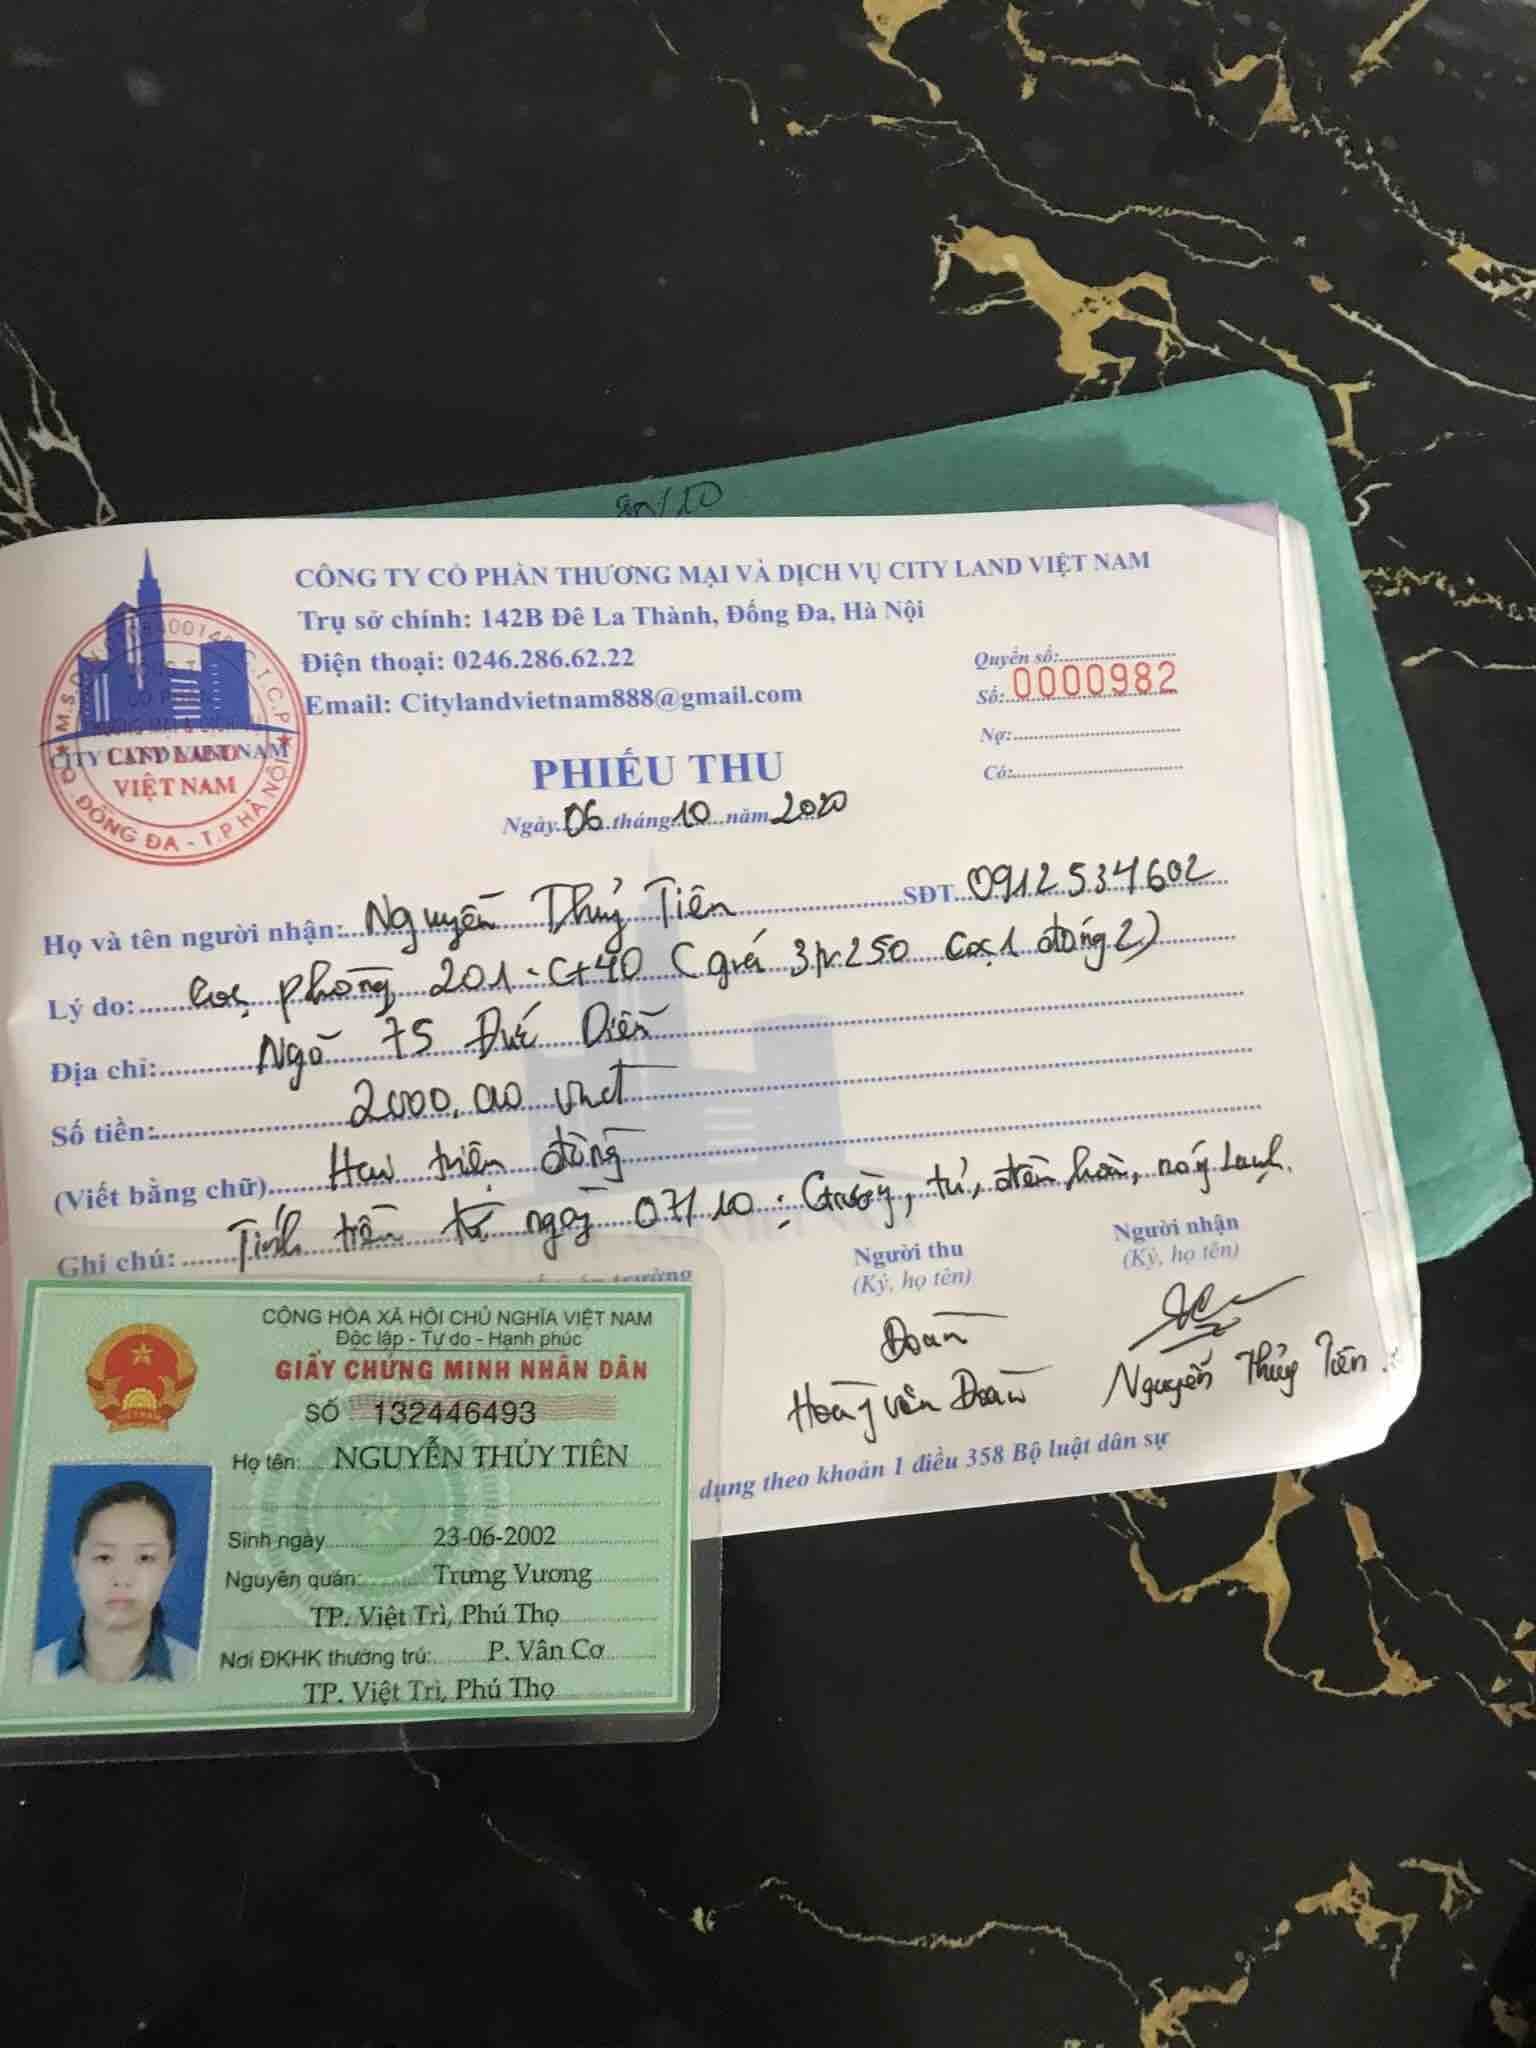 80/10
CÔNG TY CỔ PHẦN THƯƠNG MẠI VÀ DỊCH VỤ CITY LAND VIỆT NAM
Trụ sở chính: 142B Đê La Thành, Đống Đa, Hà Nội
Điện thoại: 0246.286.62.22
Email: Citylandvietnam888@gmail.com
Quyển số:
Số: 0000982
Nợ:
Có:
CITY LAND VIỆT NAM
VIỆT NAM
Q. ĐỐNG ĐA - T.P HÀ NỘI
PHIẾU THU
Ngày 06 tháng 10 năm 2020
Họ và tên người nhận: Nguyễn Thủy Tiên SĐT 0912534602
Lý do: Cọc phòng 201 - Ct40 (giá 3tr250 cọc 1 đóng 2)
Địa chỉ: Ngõ 75 Đức Diễn
Số tiền: 2000.000 vnđ
(Viết bằng chữ) Hai triệu đồng
Ghi chú: Tính tiền từ ngày 07/10: Giường, tủ, điều hòa, nóng lạnh.
Người thu
(Ký, họ tên)
Người nhận
(Ký, họ tên)
Đoàn
Hoàng Văn Đoàn
Nguyễn Thủy Tiên
dụng theo khoản 1 điều 358 Bộ luật dân sự
CỘNG HÒA XÃ HỘI CHỦ NGHĨA VIỆT NAM
Độc lập - Tự do - Hạnh phúc
GIẤY CHỨNG MINH NHÂN DÂN
SỐ 132446493
Họ tên: NGUYỄN THỦY TIÊN
Sinh ngày 23-06-2002
Nguyên quán: Trưng Vương
TP. Việt Trì, Phú Thọ
Nơi ĐKHK thường trú: P. Vân Cơ
TP. Việt Trì, Phú Thọ